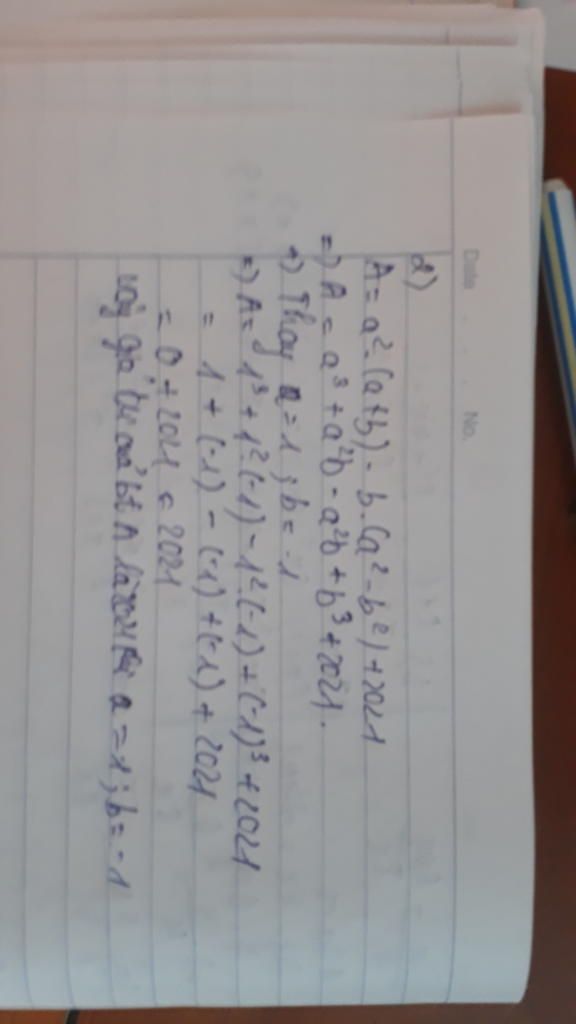 Date . . . No.
2)
A = a². (a+b) - b. (a² - b²) + 2021
=> A = a³ + a²b - a²b + b³ + 2021.
+) Thay a = 1 ; b = -1
=> A = 1³ + 1². (-1) - 1². (-1) + (-1)³ + 2021
= 1 + (-1) - (-1) + (-1) + 2021
= 0 + 2021 = 2021
Vậy giá trị của bt A là 2021 tại a = 1 ; b = -1